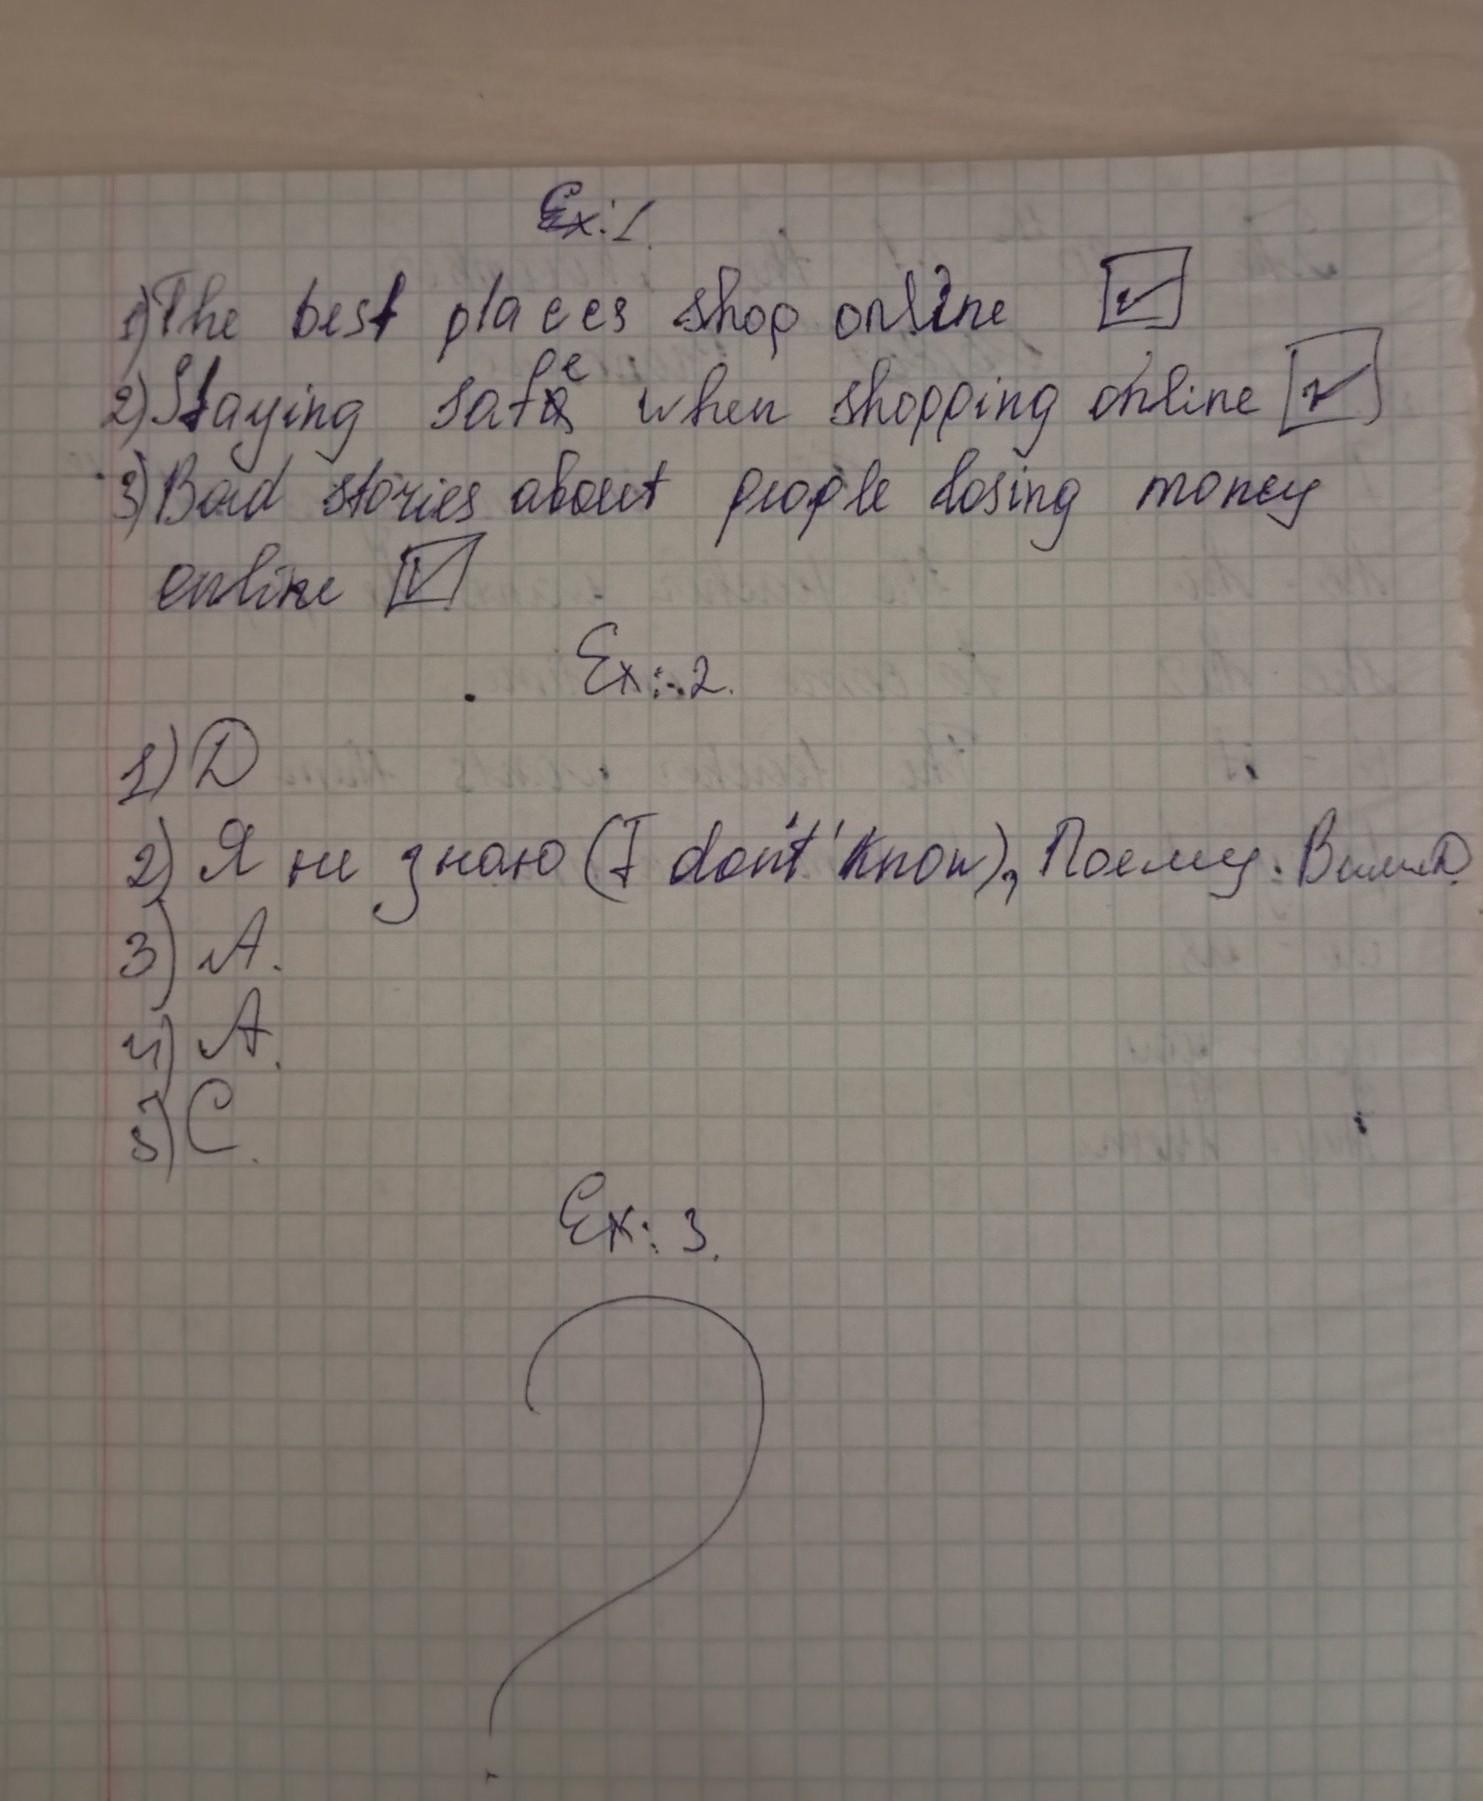 Ex: 1.
1) The best places shop online
2) Staying safe when shopping online
3) Bad stories about people losing money
online
Ex: 2.
1) D
2) Я не знаю (I don't know),
3) A.
4) A.
5) C.
Ex: 3.
?